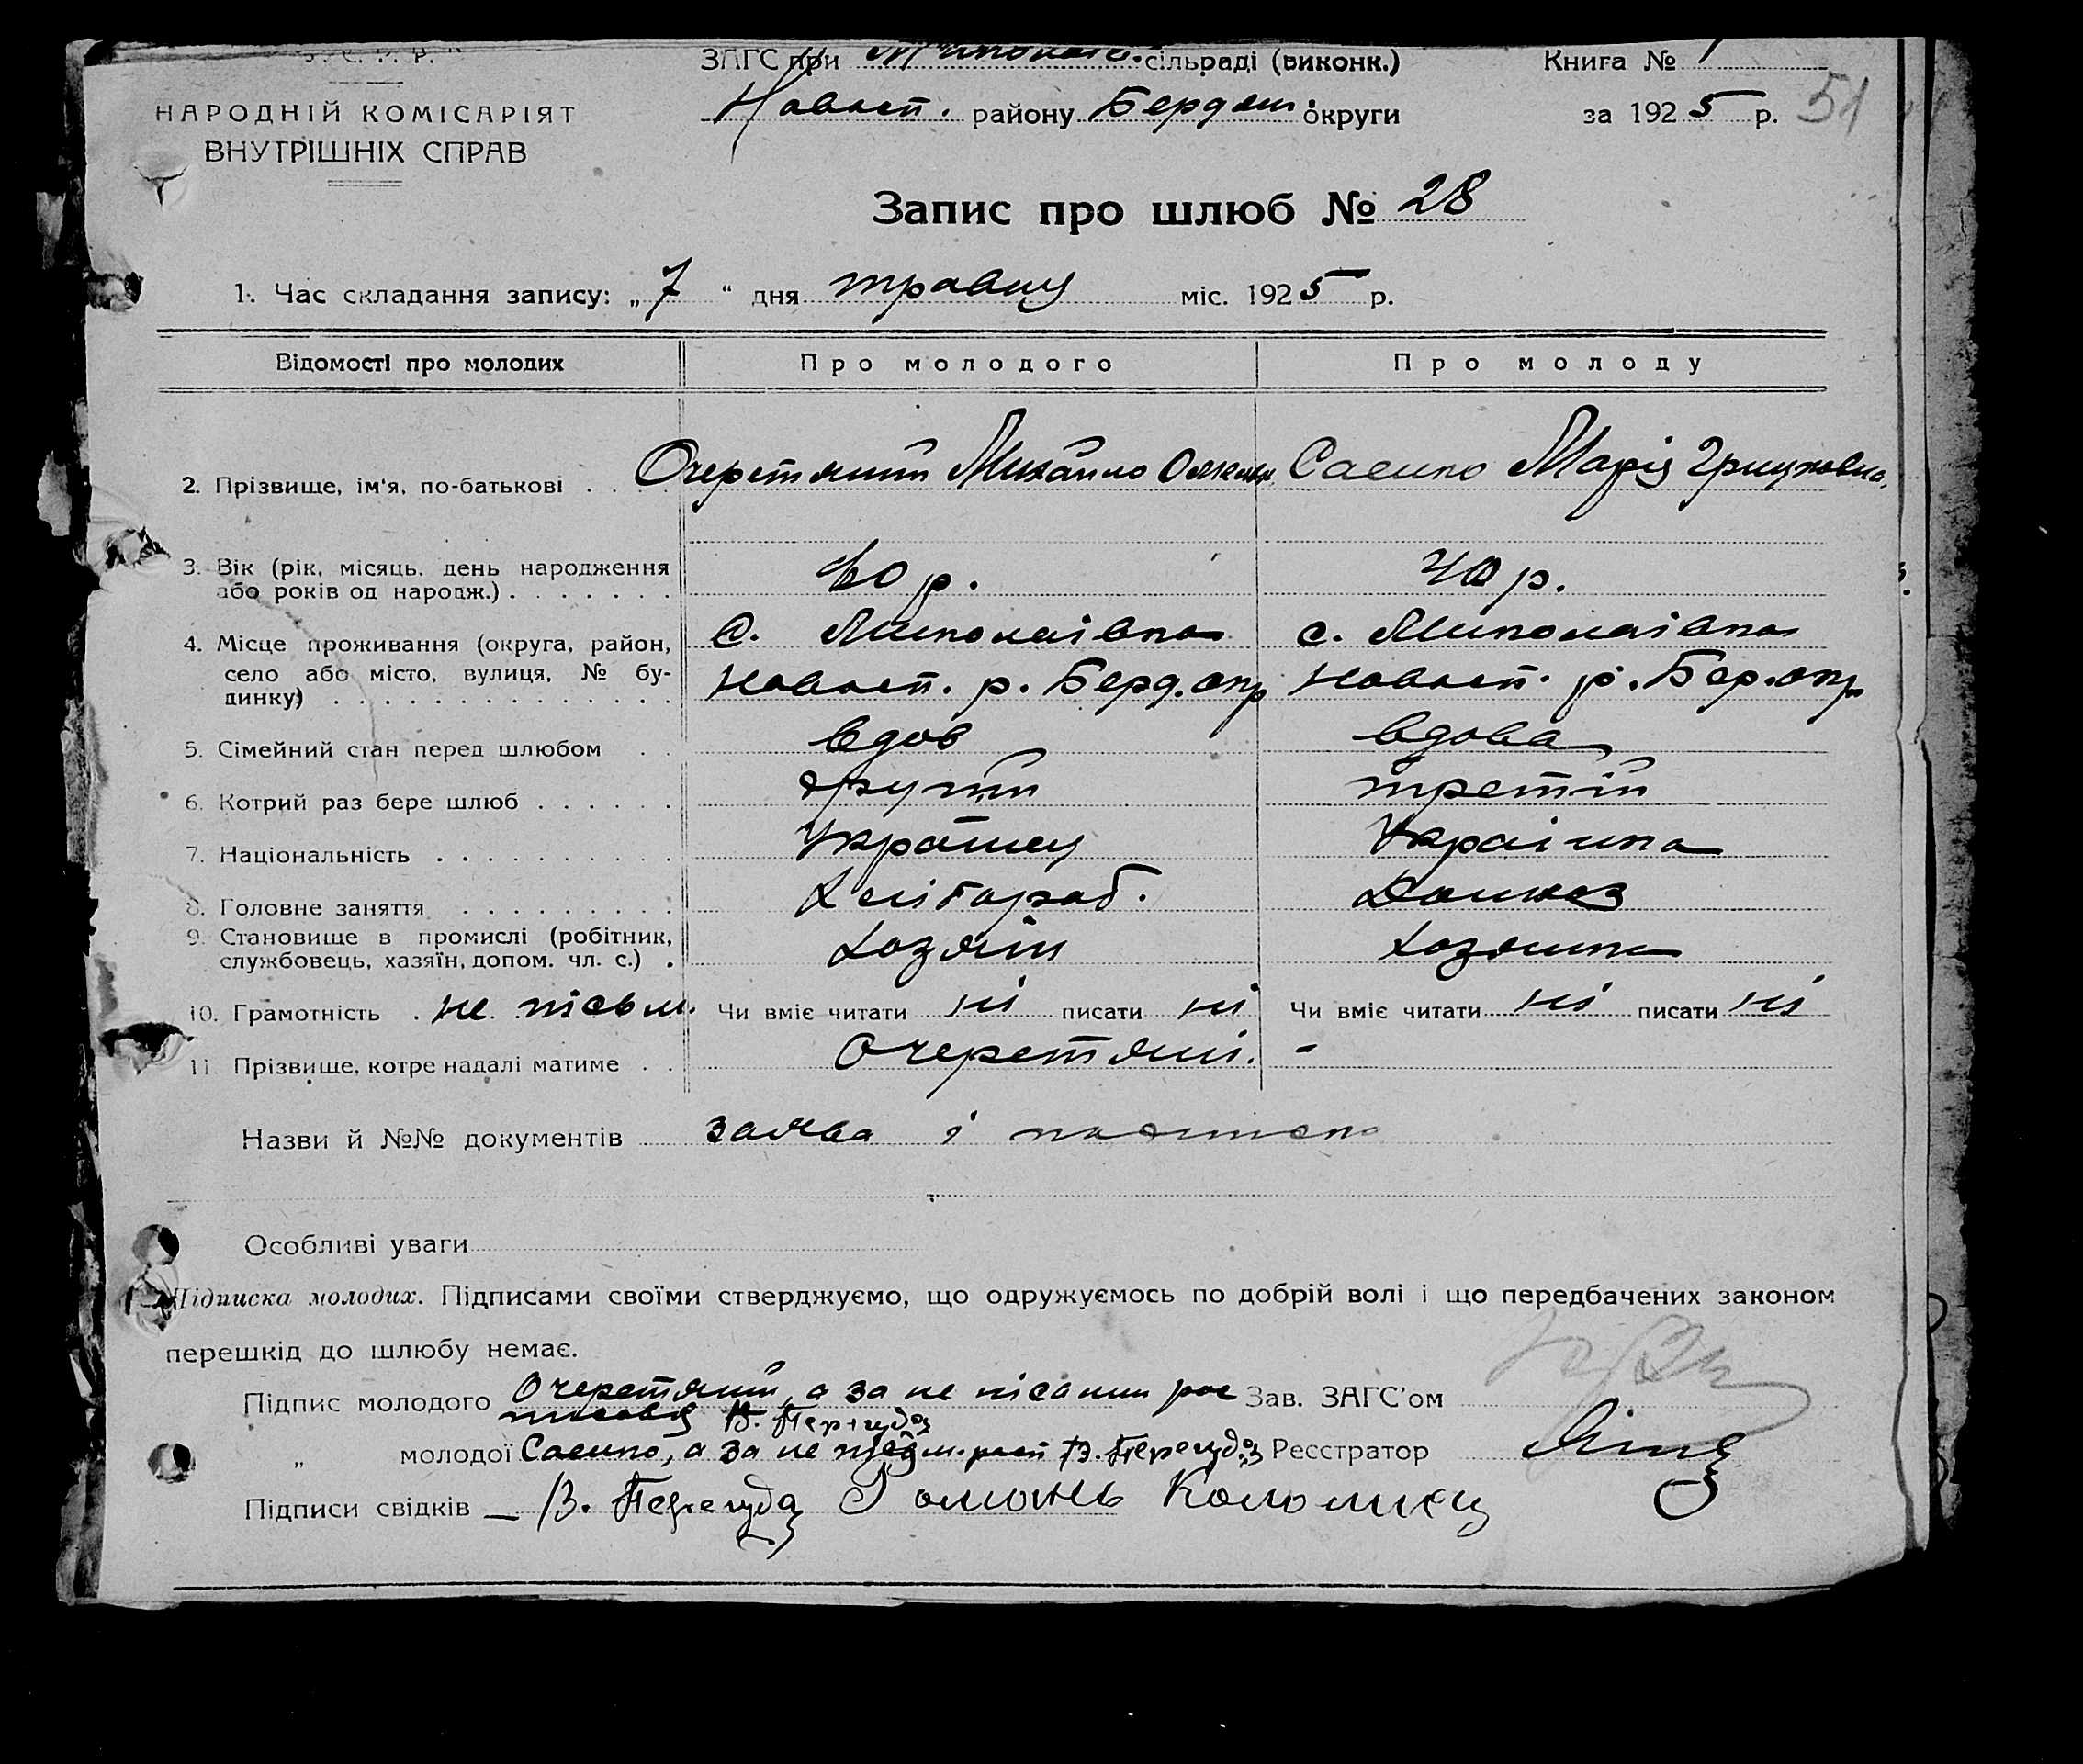 У. С. Р. Р.
ЗАГС при Миколаїв. сільраді (виконк.) Книга № 1
НАРОДНІЙ КОМІСАРІЯТ
ВНУТРІШНІХ СПРАВ
Новосп. району Бердян. округи за 1925 р. 51
Запис про шлюб № 28
1. Час складання запису: „7“ дня травня міс. 1925 р.
Відомості про молодих Про молодого Про молоду
2. Прізвище, ім'я, по-батькові . . . Очеретяний Михайло Саенко Марія Грицьковна
3. Вік (рік, місяць, день народження або років од народж.) . . . . . . . 60 р. 40 р.
4. Місце проживання (округа, район, с. Миколаівка с. Миколаівка
село або місто, вулиця, № будинку) . . . . . . . . . . . . . . . Новосп. р. Берд. окр Новосп. р. Бер. окр
5. Сімейний стан перед шлюбом . . вдов вдова
6. Котрий раз бере шлюб . . . . . . другий третій
7. Національність . . . . . . . . . . Українец Українка
8. Головне заняття . . . . . . . . . Хліборад. Домхоз
9. Становище в промислі (робітник, службовець, хазяїн, допом. чл. с.) . Хозяїн Хозяйка
10. Грамотність . не письм. Чи вміє читати ні писати ні Чи вміє читати ні писати ні
11. Прізвище, котре надалі матиме . . Очеретяні. -
Назви й №№ документів заява і
Особливі уваги
Підписка молодих. Підписами своїми стверджуємо, що одружуємось по добрій волі і що передбачених законом
перешкід до шлюбу немає.
Підпис молодого Очеретяний, а за не пісаний рос Зав. ЗАГС'ом
писався В. Перегуда
„ молодої Саенко, а за не письм. росп В. Перегуда Реєстратор
Підписи свідків — В. Перегуда Романь Коломиец